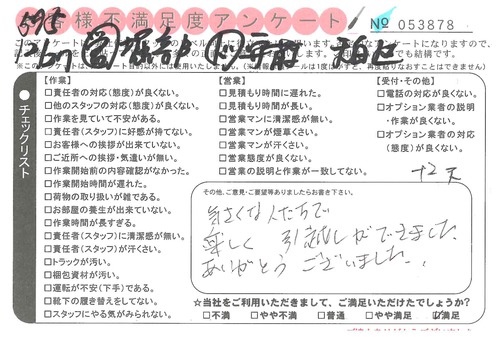 お客様不満足度アンケート
№ 053878
【作業】
□責任者の対応(態度)が良くない。
□他のスタッフの対応(態度)が良くない。
□作業を見ていて不安がある。
□責任者(スタッフ)に好感が持てない。
□お客様への挨拶が出来ていない。
□ご近所への挨拶・気遣いが無い。
□作業開始前の内容確認がなかった。
□作業開始時間が遅れた。
□荷物の取り扱いが雑である。
□お部屋の養生が出来ていない。
□作業時間が長すぎる。
□責任者(スタッフ)に清潔感が無い。
□責任者(スタッフ)が汗くさい。
□トラックが汚い。
□梱包資材が汚い。
□運転が不安(下手)である。
□靴下の履き替えをしてない。
□スタッフにやる気がみられない。
【営業】
□見積もり時間に遅れた。
□見積もり時間が長い。
□営業マンに清潔感が無い。
□営業マンが煙草くさい。
□営業マンが汗くさい。
□営業態度が良くない。
□営業の説明と作業が一致してない。
【受付・その他】
□電話の対応が良くない。
□オプション業者の説明
・作業が良くない。
□オプション業者の対応
(態度)が良くない。
チェックリスト
その他、ご意見・ご要望等ありましたらお書き下さい。
気さくな人たちで
楽しく 引越しができました。
ありがとう ございました。
☆当社をご利用いただきまして、ご満足いただけたでしょうか?
□不満 □やや不満 □普通 □やや満足 □満足